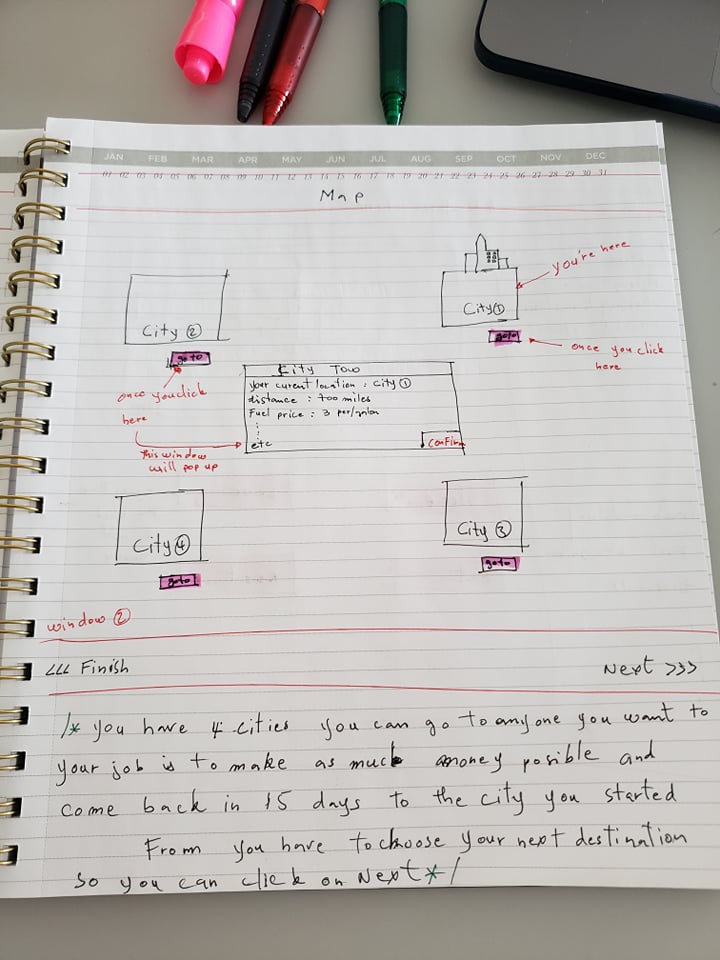 JAN FEB MAR APR MAY JUN JUL AUG SEP OCT NOV DEC
01 02 03 04 05 06 07 08 09 10 11 12 13 14 15 16 17 18 19 20 21 22 23 24 25 26 27 28 29 30 31
Map
you're here
City ①
City ②
goto
go to
once you click
here
once you click
here
City Tow
your curent location : City ①
distance : 700 miles
Fuel price : 3 per/galon
etc
confirm
this window
will pop up
City ④
City ③
goto
goto
window ②
<<< Finish
Next >>>
/* you have 4 cities you can go to anyone you want to
your job is to make as much money posible and
come back in 15 days to the city you started
From you have to choose your next destination
so you can click on Next */